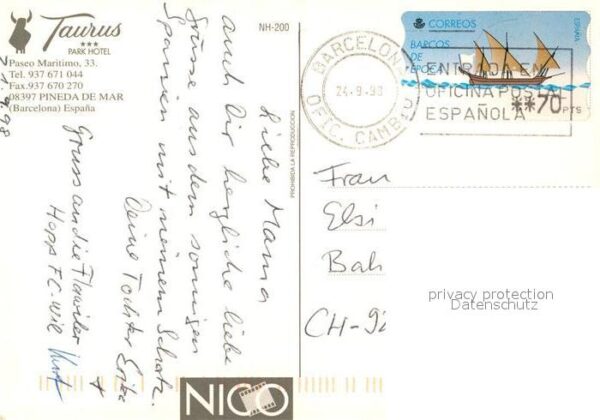 Taurus
★★★
PARK HOTEL
Paseo Maritimo, 33.
Tel. 937 671 044
Fax.937 670 270
08397 PINEDA DE MAR
(Barcelona) España
NH-200
PROHIBIDA LA REPRODUCCION
21.9.98
Liebe Mama
auch Dir herzliche liebe
Grüsse aus dem sonnigen
Spanien mit meinem Schatz.
Deine Tochter Erika
+
Gruss an die Flawiler
Hopp FC-Wil Kurt
BARCELONA
OFIC. CAMBIO
24-9-98
ENTRADA EN
OFICINA POSTAL
ESPAÑOLA
CORREOS
ESPAÑA
BARCOS
DE
EPOCA
**70 PTS
Frau
Elsi
Bah
CH-92
privacy protection
Datenschutz
NICO